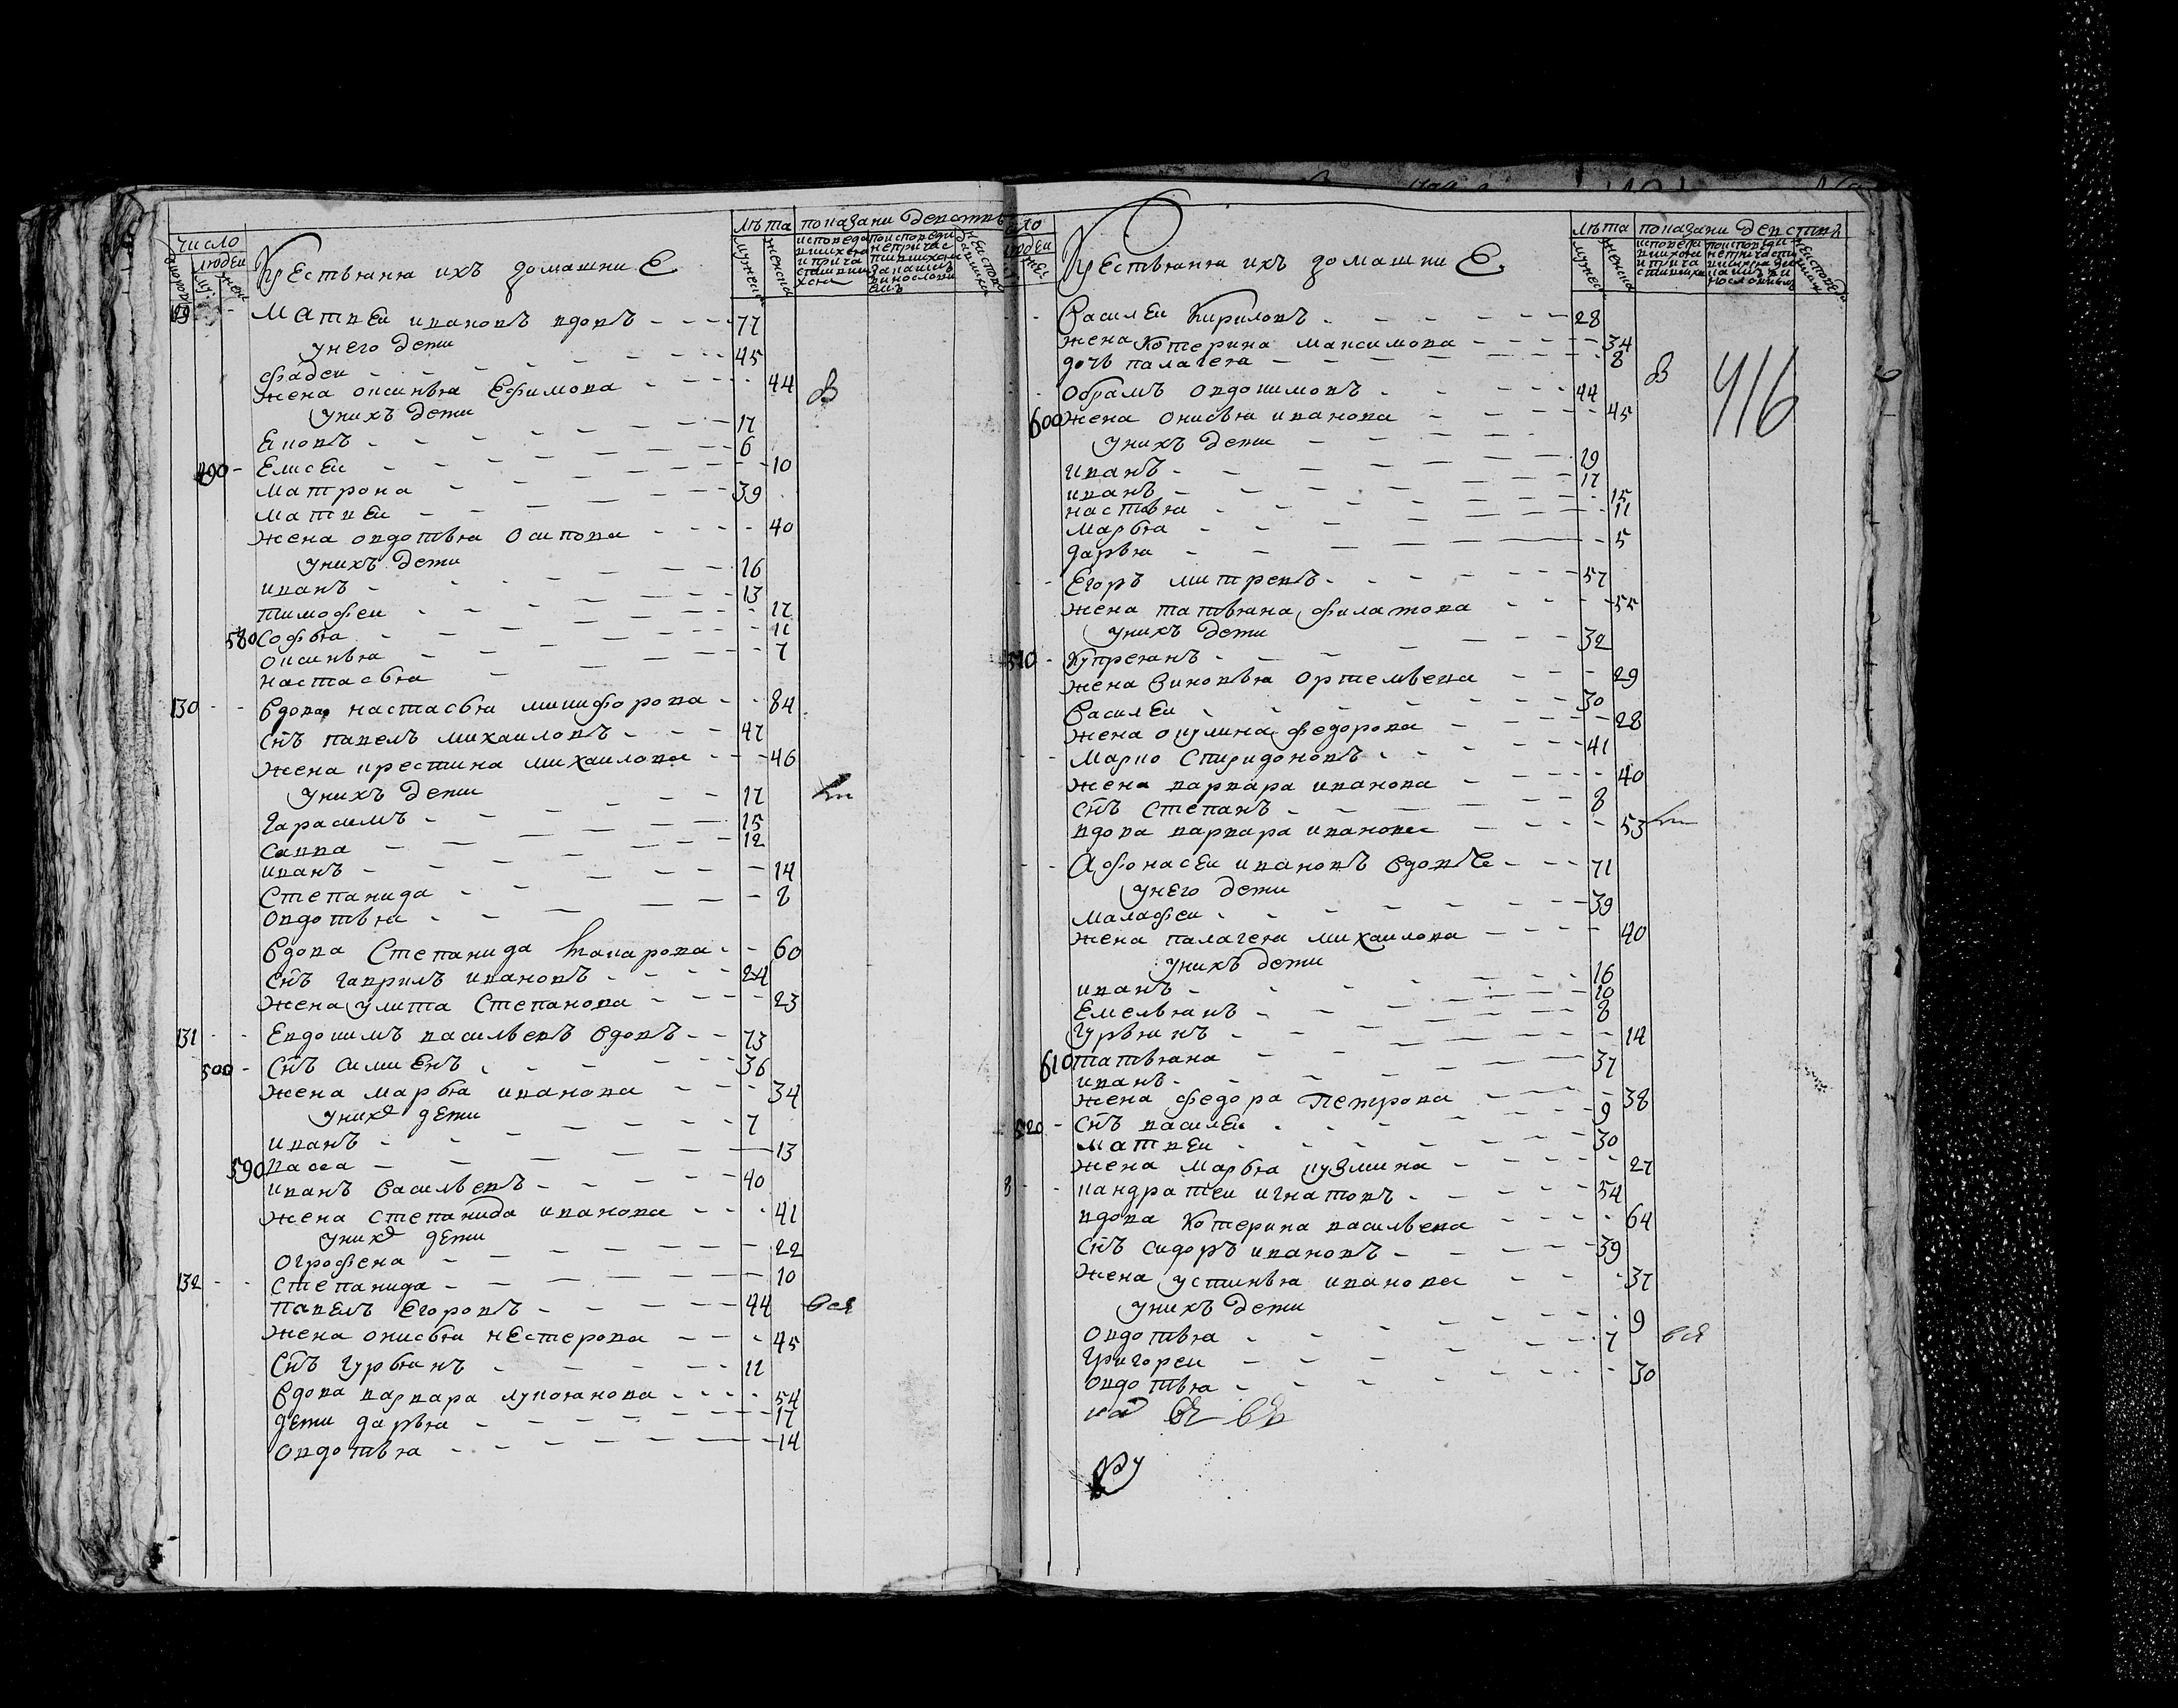 число
людеи
му
жен
Крестьяня ихъ домашни Е
лѣта
мужеск
женска
показани деиство
исповеда
вшихся
и прича
стивши
хся
по исповеди
непричас
тившихся
за каким
винослови
емъ
неиспове
давшихся
129 - - Матвеи ивановъ вдовъ - - - 77
у него дети
фадеи - - - 45
жена оксинья Ефимова - - - 44 В
у нихъ дети
Ековъ - - - 17
490 - Елисеи - - - 6
матрона - - - 10
матвеи - - - 39
жена овдотья Осипова - - - 40
у нихъ дети
иванъ - - - 16
тимофеи - - - 13
580 Софья - - - 17
оксинья - - - 11
настасья - - - 7
130 - - Вдова настасья микифорова - - 84
снъ павелъ михаиловъ - - - 47
жена крестина михаилова - - - 46
у нихъ дети
Гарасимъ - - - 17
Савва - - - 15
иванъ - - - 12
Степанида - - - 14
Овдотья - - - 8
Вдова Степанида макарова - - 60
снъ гаврилъ ивановъ - - - 24
жена улита Степанова - - - 23
131 - - Евдокимъ васильевъ вдовъ - - 73
500 - Снъ симиенъ - - - 36
жена марья иванова - - - 34
у нихъ дети
иванъ - - - 7
590 - - - 13
иванъ Васильевъ - - - 40
жена степанида иванова - - - 41
у нихъ дети
Огрофена - - - 22
132 - - Степанида - - - 10
павелъ Егоровъ - - - 44 вся
жена онисья нестерова - - - 45
Снъ гурьянъ - - - 11
Вдова варвара лукоянова - - - 54
дети дарья - - - 17
Овдотья - - - 14
людеи
жен
Крестьяня ихъ домашни Е
лѣта
мужес
женска
показани деиства
исповеда
вшихся
и прича
стившихся
неиспове
- Василеи Кириловъ - - - 28
жена Котерина максимова - - - 34
дочь палагея - - - 8
В
416
- Обрамъ овдокимовъ - - - 44
600 жена Онисья иванова - - - 45
у нихъ дети
иванъ - - - 19
иванъ - - - 17
настья - - - 15
марья - - - 11
дарья - - - 5
- - Егоръ митревъ - - - 57
жена татьяна филатова - - - 55
у нихъ дети
510 - Купреянъ - - - 32
жена Зиновья Ортемьева - - - 29
Василеи - - - 30
жена окулина федорова - - - 28
- - Марко Спиридоновъ - - - 41
жена варвара иванова - - - 40
снъ Степанъ - - - 8
вдова варвара иванова - - - 53
- - Афонасеи ивановъ вдовъ - - - 71
у него дети
малафеи - - - 39
жена палагея михаилова - - - 40
у нихъ дети
иванъ - - - 16
Емельянъ - - - 10
Гурьянъ - - - 8
610 татьяна - - - 14
иванъ - - - 37
жена федора Петрова - - - 38
520 - снъ василеи - - - 9
матвеи - - - 30
жена марья кузмина - - - 27
8 - - кандратеи игнатовъ - - - 54
вдова Котерина васильева - - - 64
снъ сидоръ ивановъ - - - 39
жена устинья иванова - - - 37
у нихъ дети
Овдотья - - - 9
григореи - - - 7 вся
овдотья - - - 30